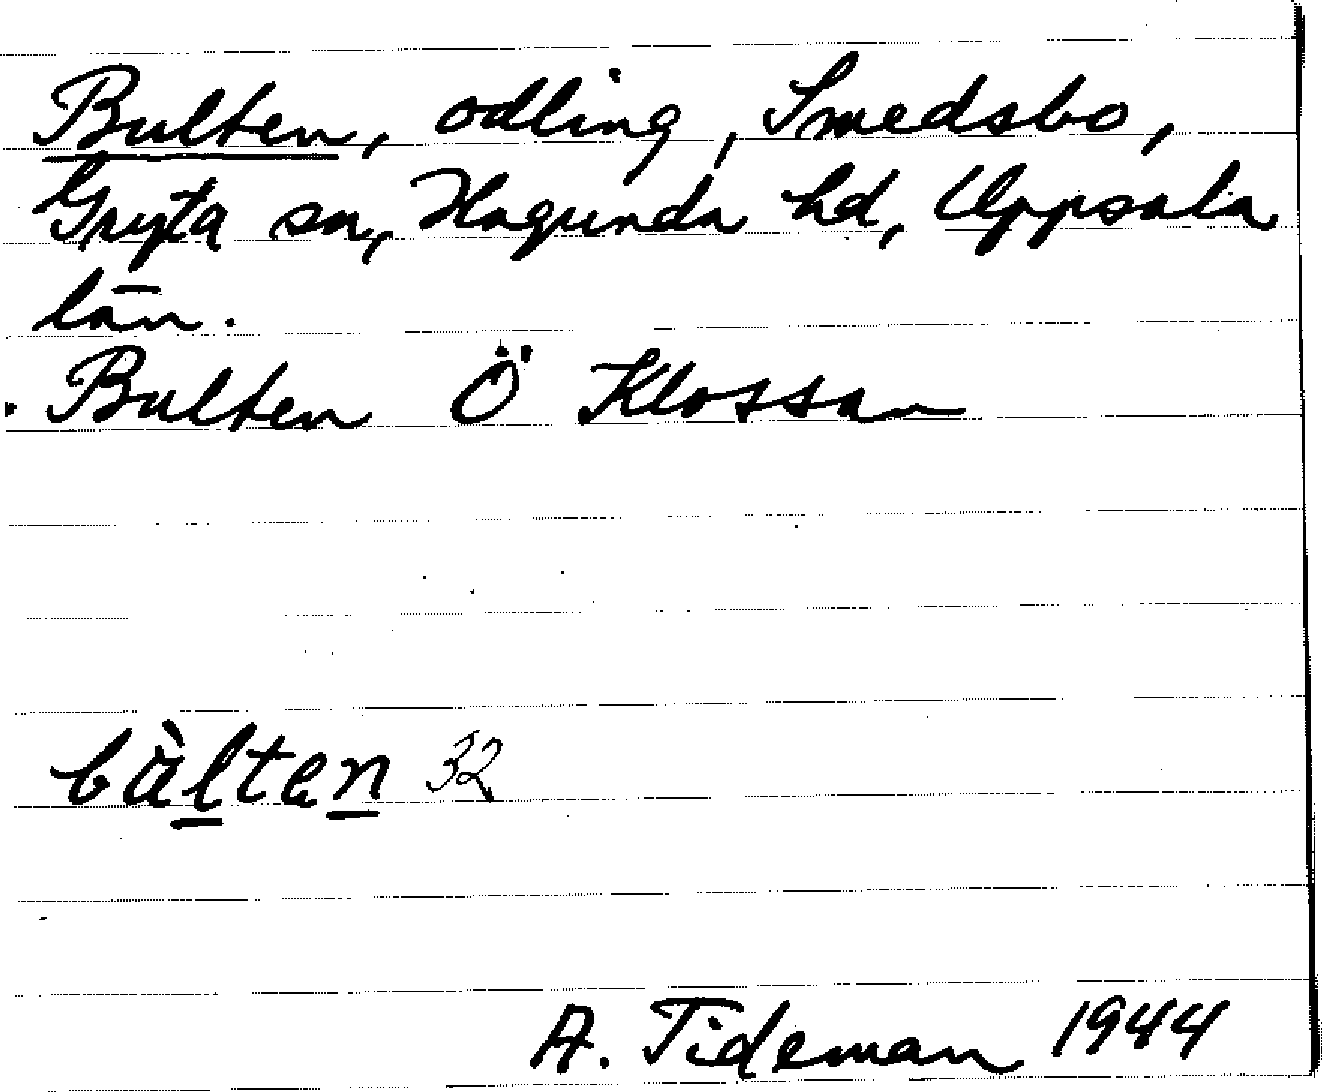 Bulten, odling, Smedsbo,
Gryta sn, Hagunda hd, Uppsala
län.
Bulten Ö Klossan
bàlten 32
A. Tideman 1944